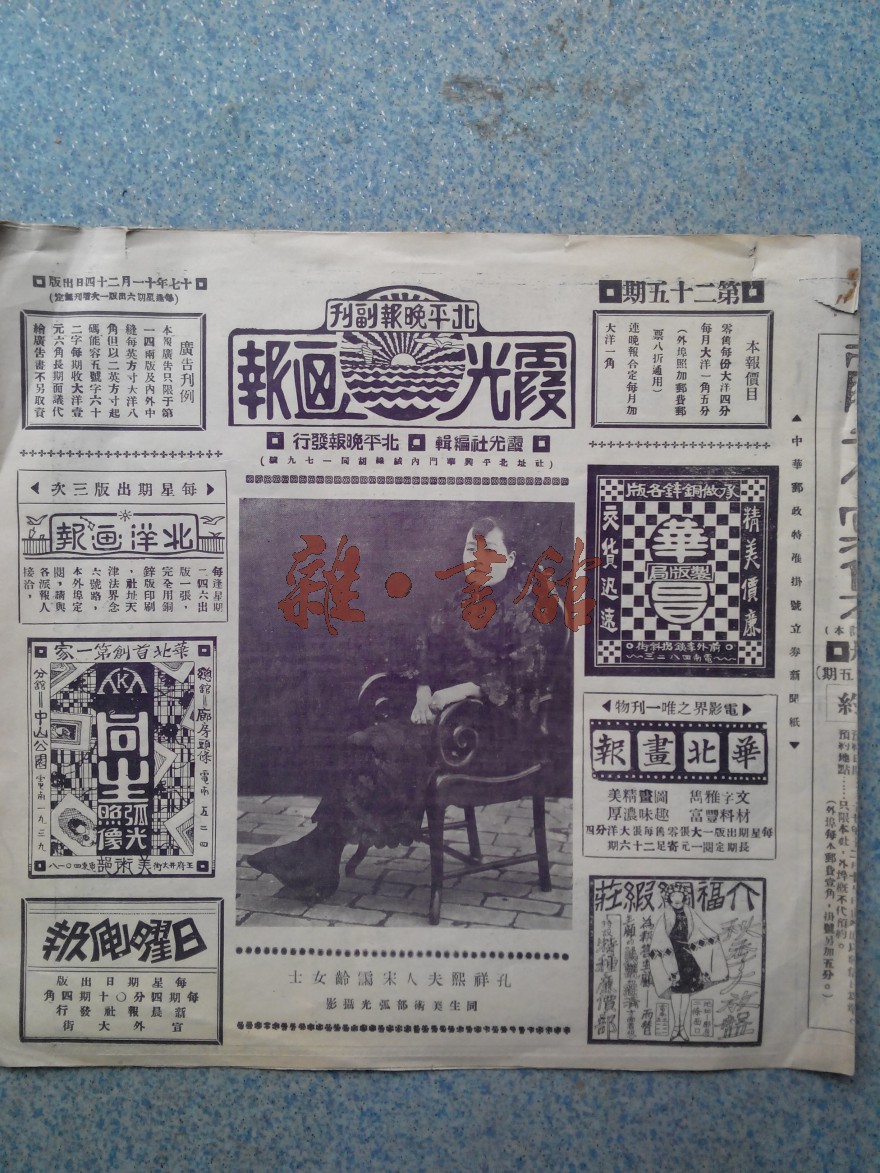 第二十五期
十七年十一月二十四日出版
(每逢星期六出版一大張刊無定)
北平晚報副刊
霞光画報
霞光社編輯 北平晚報發行
本報價目
零售每份大洋四分
每月大洋一角五分
(外埠照加郵費郵
票八折通用)
連晚報合定每月加
大洋一角
廣告刊例
本報廣告只限于第
一四兩版及內外中
縫每英方寸大洋八
角但以二英方寸起
碼能容五號字六十
二字每期收大洋壹
元六角長期面議代
繪廣告畫不另取資
中華郵政特准掛號立券新聞紙
承做銅鋅各版
精美價廉
交貨迅速
華昌
製版局
電南四八二三
每星期出版三次
北洋画報
每逢星期
二四六出
版一張,
完全用銅
鋅版印刷
,社址天
津法界念
六號路,
本外埠定
閱,請與
各派報人
接洽,
華北首創第一家
總舘 廊房頭條 電南五二四
分舘 中山公園 電南一九三九
同生
弧光
照像
美術部
王府井大街
電東四〇一八
電影界之唯一刊物
華北畫報
文字雅雋 圖畫精美
材料豐富 趣味濃厚
每星期出版一大張零售每張大洋四分
長期定閱一元寄足二十六期
介福綢緞莊
秋季大減價
日曜画报
每星期日出版
每期四分 十期四角
新晨報社發行
宣外大街
孔祥熙夫人宋靄齡女士
同生美術部弧光攝影
雜·書館